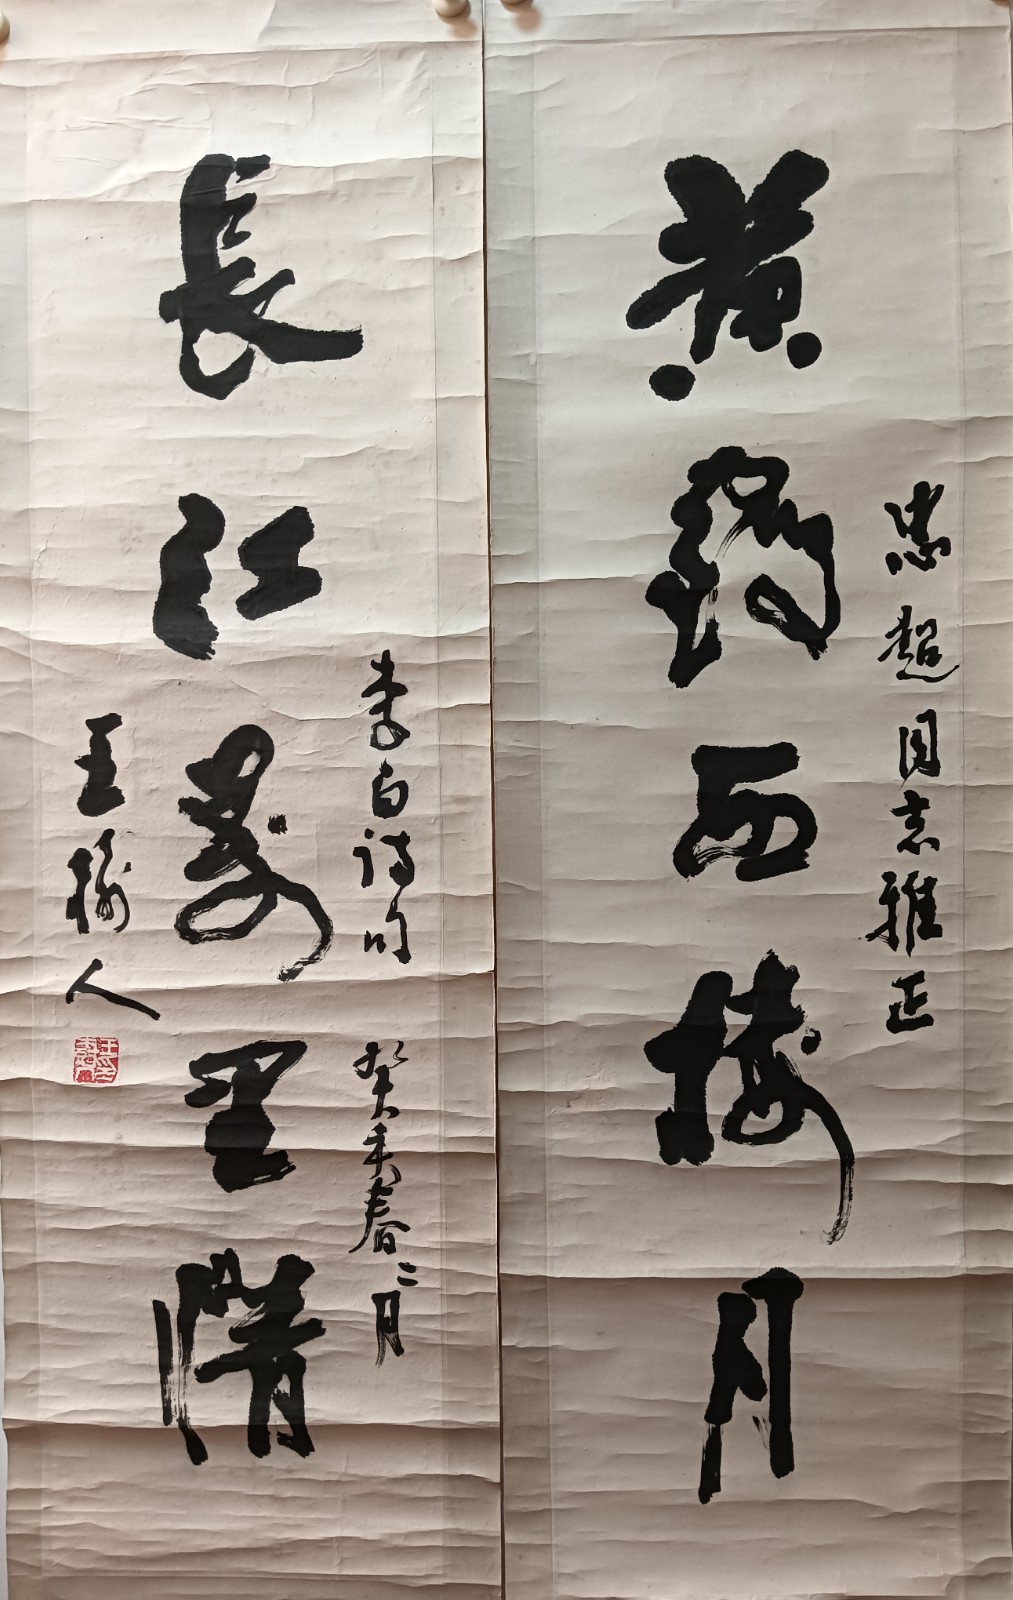 黄鹤西楼月
忠超同志雅正
长江万里情
李白诗句
癸未春二月
王榆人